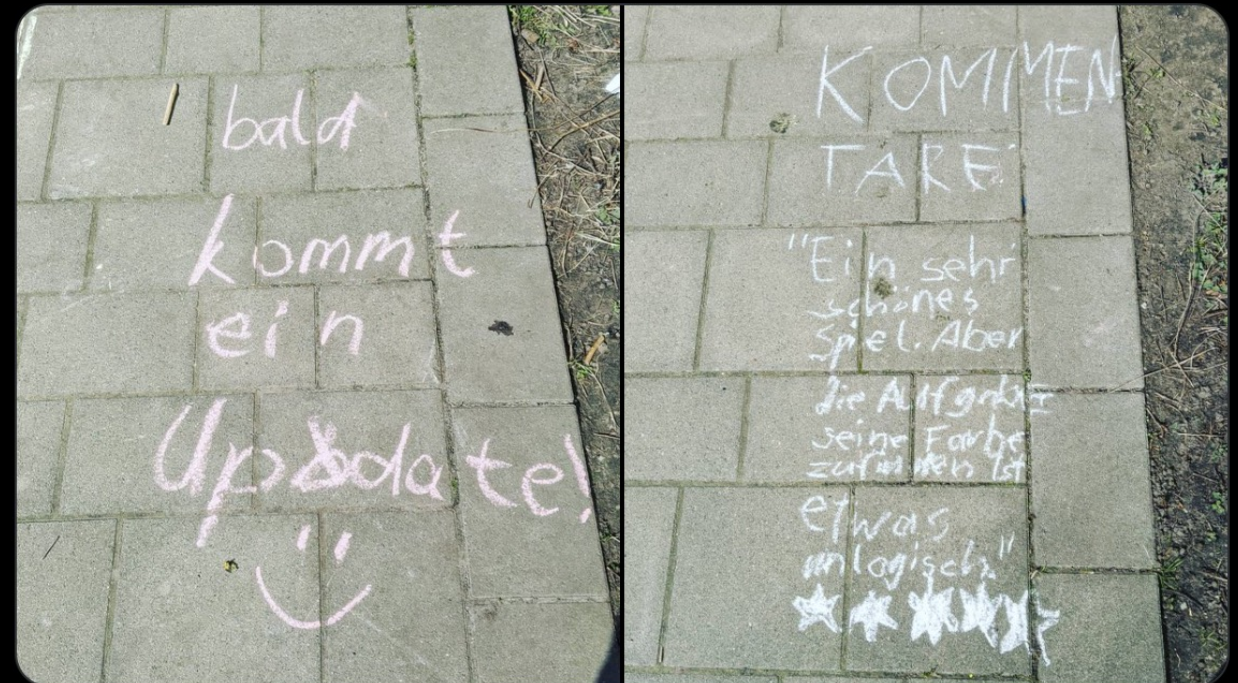 bald
kommt
ein
Update!
KOMMEN
TARE
"Ein sehr
schönes
Spiel. Aber
die Aufgabe
seine Farbe
zufinden ist
etwas
unlogisch"